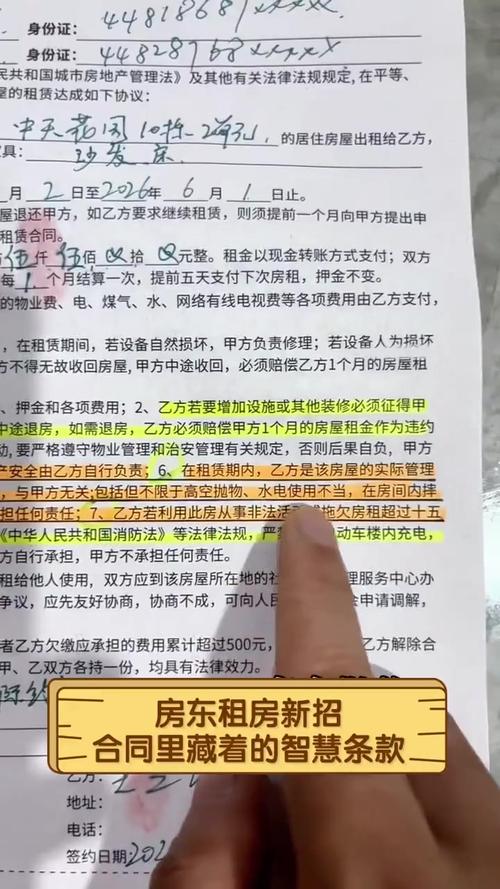 身份证: 44818687xxxx
身份证: 44828768xxxxx
民共和国城市房地产管理法》及其他有关法律法规规定,在平等、
屋的租赁达成如下协议:
中天花园10栋2单元 的居住房屋出租给乙方,
具: 沙发床
月2日至2026年6月1日止。
屋退还甲方,如乙方要求继续租赁,则须提前一个月向甲方提出申
租赁合同。
伍仟伍佰 拾 元整。租金以现金转账方式支付;双方
每1个月结算一次,提前五天支付下次房租,押金不变。
的物业费、电、煤气、水、网络有线电视费等各项费用由乙方支付,
,在租赁期间,若设备自然损坏,甲方负责修理;若设备人为损坏
方不得无故收回房屋,甲方中途收回,必须赔偿乙方1个月的房屋租
、押金和各项费用;2、乙方若要增加设施或其他装修必须征得甲
中途退房,如需退房,乙方必须赔偿甲方1个月的房屋租金作为违约
动,要严格遵守物业管理和治安管理有关规定,否则后果自负,甲方
产安全由乙方自行负责;6、在租赁期内,乙方是该房屋的实际管理
,与甲方无关;包括但不限于高空抛物、水电使用不当,在房间内摔
担任何责任;7、乙方若利用此房从事非法活 拖欠房租超过十五
《中华人民共和国消防法》等法律法规,严 动车楼内充电,
方自行承担,甲方不承担任何责任。
租给他人使用,双方应到该房屋所在地的社 理服务中心办
争议,应先友好协商,协商不成,可向人民 会申请调解,
者乙方欠缴应承担的费用累计超过500元, 乙方解除合
甲、乙双方各持一份,均具有法律效力。
房东租房新招
合同里藏着的智慧条款
乙方:
地址:
电话:
签约日期:202